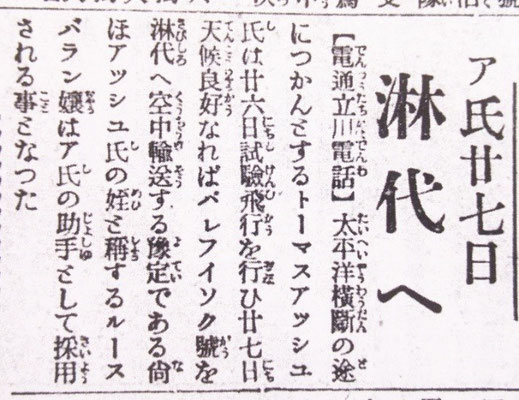 ア氏廿七日
淋代へ
【電通立川電話】太平洋横斷の途
につかんとするトーマスアッシュ
氏は廿六日試驗飛行を行ひ廿七日
天候良好なればパシフイック號を
淋代へ空中輸送する豫定である尚
ほアッシユ氏の姪と稱するルース
バラン孃はア氏の助手として採用
される事となつた